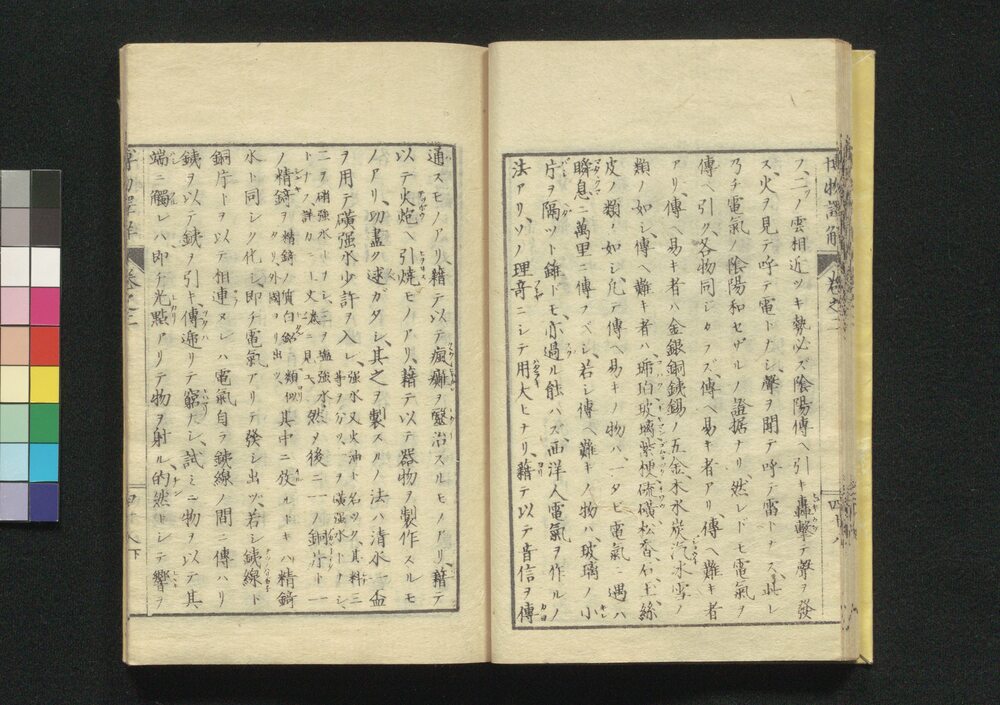 フ、二ツノ雲相近ヅキ勢必ズ陰陽傳ヘ引キ轟撃テ聲ヲ發
ス、火ヲ見テ呼テ電トナシ、聲ヲ聞テ呼テ雷トナス、此レ
乃チ電氣ノ陰陽和セザルノ證据ナリ然レドモ電氣ヲ
傳ヘ引ク、各物同シカラズ、傳ヘ易キ者アリ、傳ヘ難キ者
アリ、傳ヘ易キ者ハ金銀銅鉄錫ノ五金、木水炭汽氷雪ノ
類ノ如シ、傳ヘ難キ者ハ、琥珀玻璃紫梗硫磺松香石玉、絲
皮ノ類ノ如シ、凡テ傳ヘ易キノ物ハ、一タビ電氣ニ遇ハ
瞬息ニ萬里ニ傳フベシ、若シ傳ヘ難キノ物ハ玻璃ノ小
片ヲ隔ツト雖トモ、亦過ル能ハズ、西洋人電氣ヲ作ルノ
法アリ、ソノ理奇ニシテ用大ヒナリ、藉テ以テ音信ヲ傳
博物
巻之二
通スモノアリ、藉テ以テ瘋癱ヲ醫治スルモノアリ、藉テ
以テ火炮ヘ引焼モノアリ、藉テ以テ器物ヲ製作スルモ
ノアリ、切盡ク逑ガタシ、其之ヲ製スルノ法ハ清水一盃
ヲ用テ磺强水少許ヲ入レ、
强水又火油ト名ヅク、其料三
等ヲ分ツ、一ヲ磺强水トノシ、
二ヲ硝强水トナシ、三ヲ塩强水
トナス、詳カニ
然メ後ニ一ノ銅片ト一
ノ精錡ヲ
精錡ノ質白鉛ニ類似
タリ、外國ヨリ出ヅ、
其中ニ放ルトキハ精錡
水ト同シク化シ、即チ電氣アリテ發シ出ヅ、若シ鉄線ト
銅片トヲ以テ相連ヌレハ電氣自ラ鉄線ノ間ニ傳ハリ
鉄ヲ以テ鉄ヲ引キ、傳逓リテ窮リナシ、試ミニ物ヲ以テ其
端ニ觸レハ即チ光點アリテ物ヲ射ル、的然トシテ響ヲ